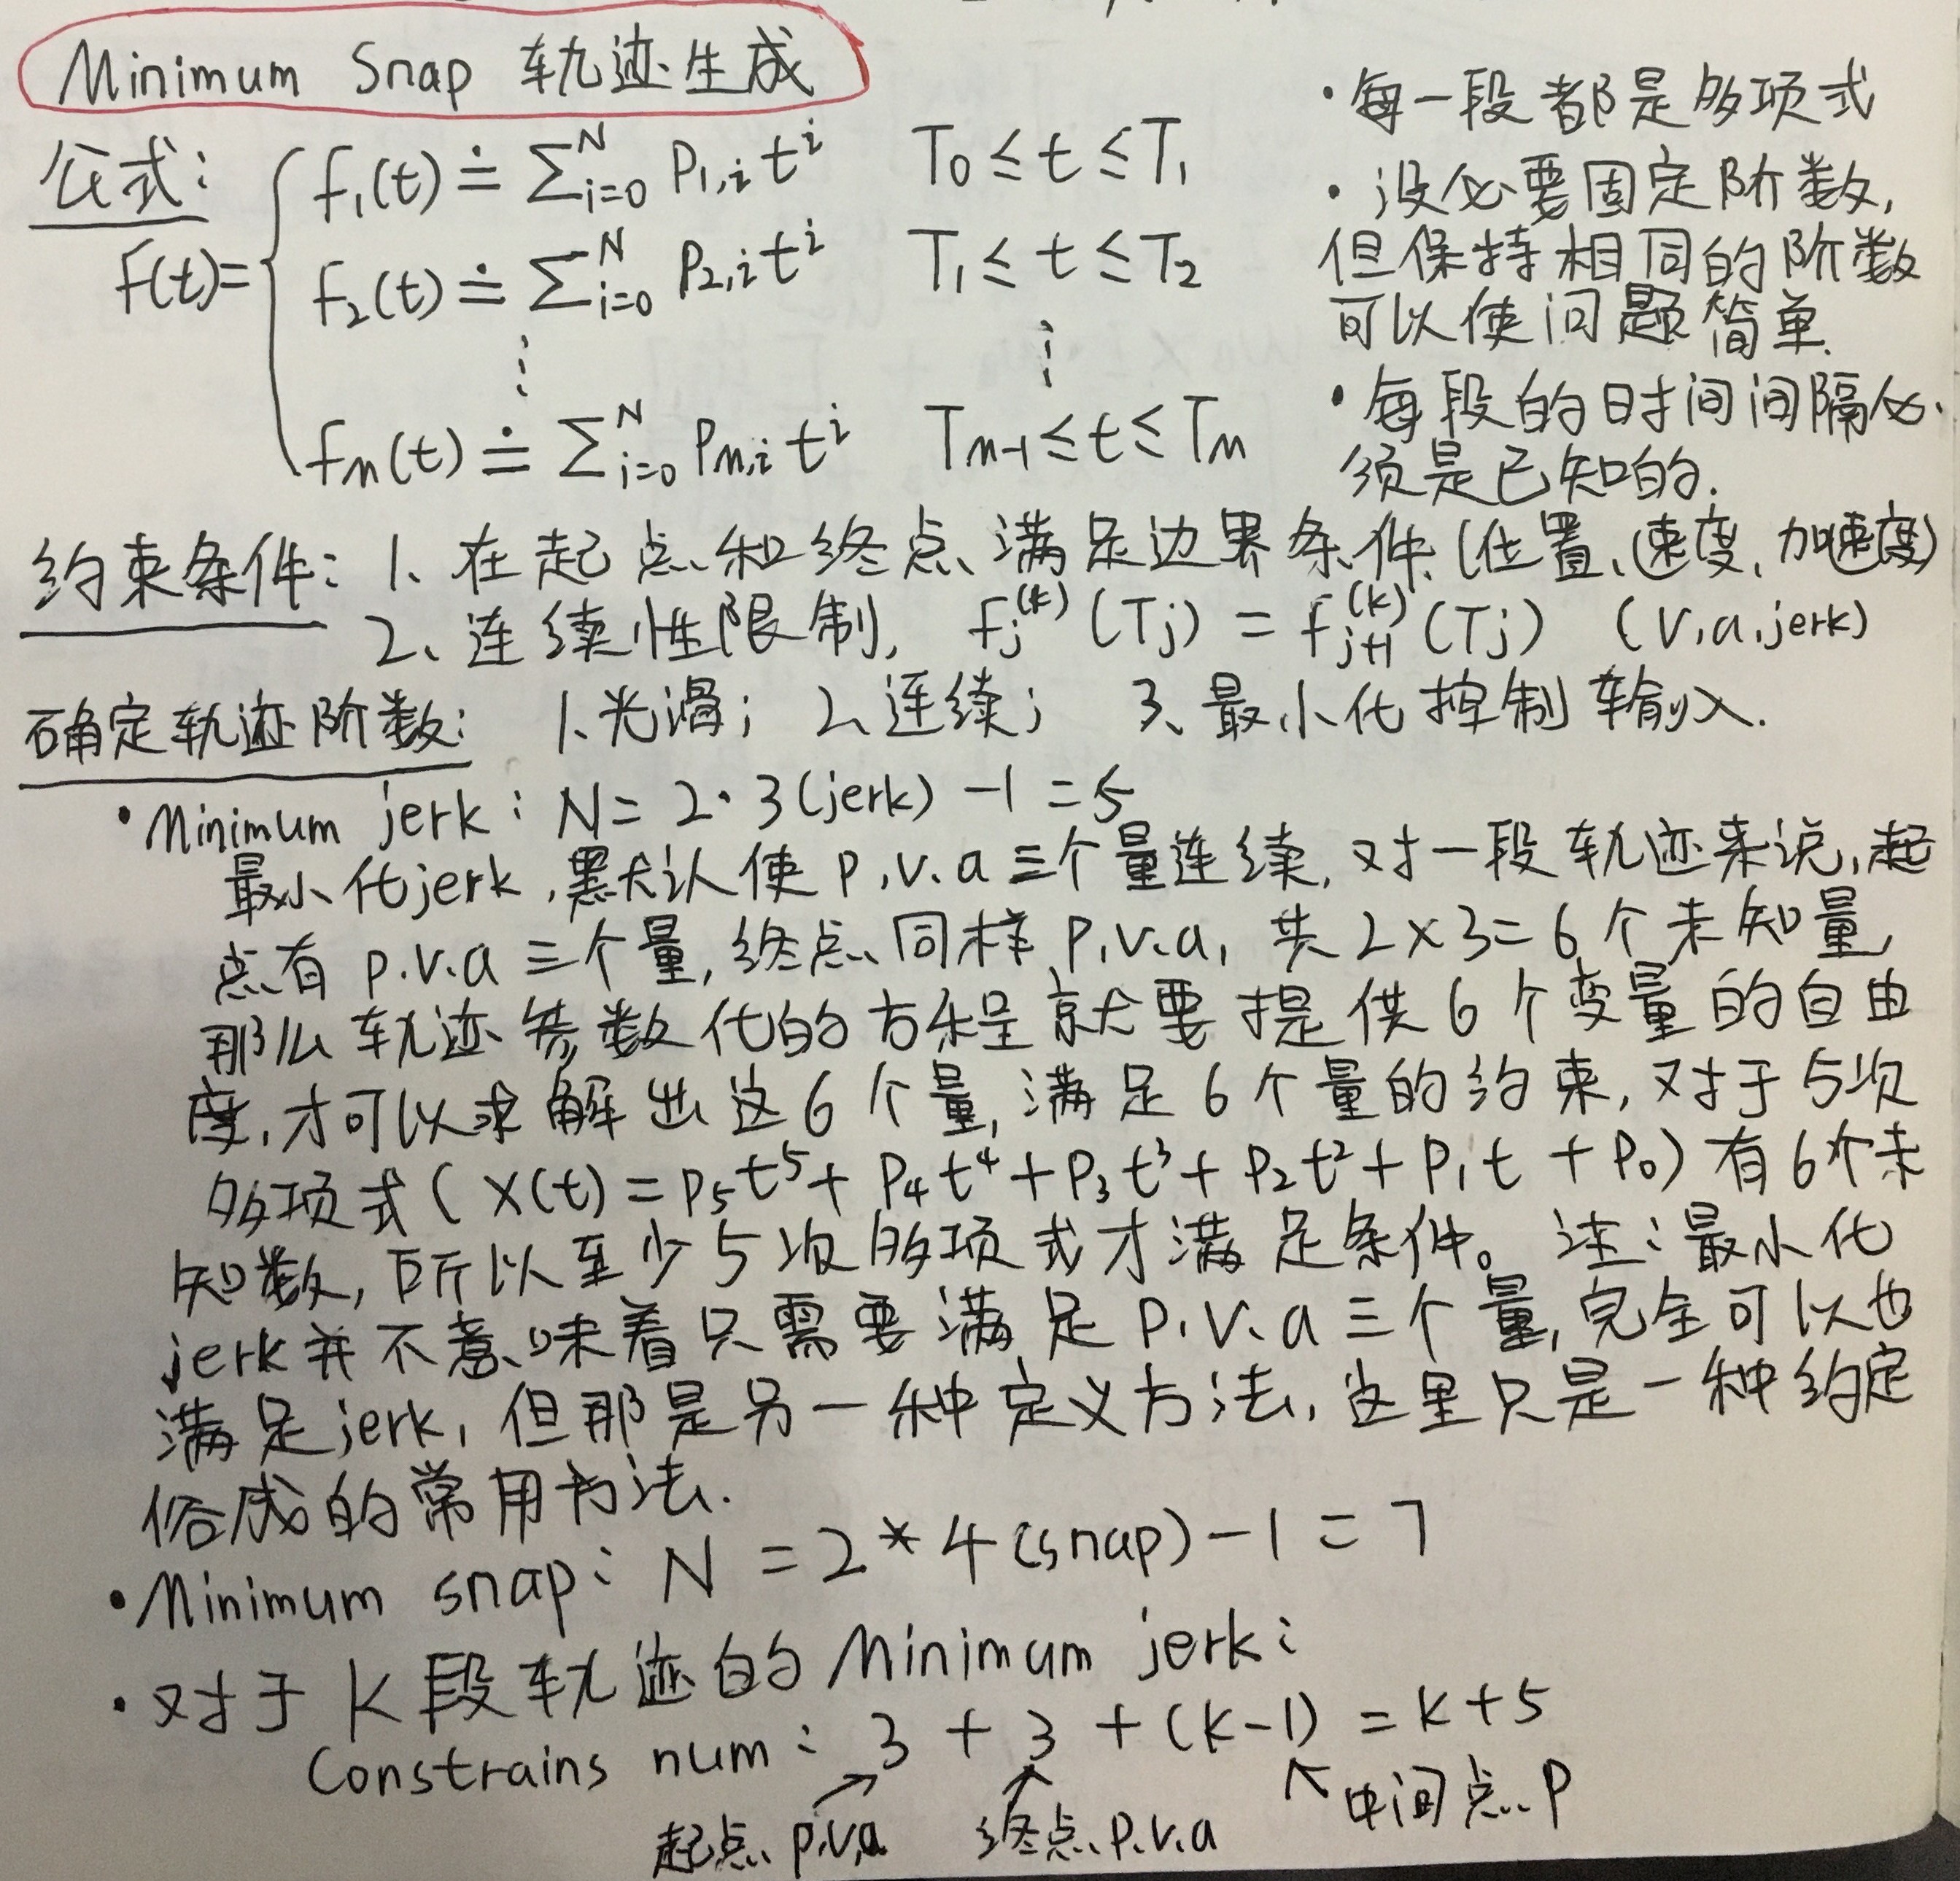 Minimum Snap 轨迹生成
公式:
F(t)=
f₁(t) ≐ ∑ᵢ₌₀ᴺ P₁,ᵢ tⁱ T₀ ≤ t ≤ T₁
f₂(t) ≐ ∑ᵢ₌₀ᴺ P₂,ᵢ tⁱ T₁ ≤ t ≤ T₂
⋮ ⋮
fₘ(t) ≐ ∑ᵢ₌₀ᴺ Pₘ,ᵢ tⁱ Tₘ₋₁ ≤ t ≤ Tₘ
· 每一段都是多项式
· 没必要固定阶数,
但保持相同的阶数
可以使问题简单.
· 每段的时间间隔必
须是已知的.
约束条件: 1、在起点和终点满足边界条件(位置、速度、加速度)
2、连续性限制, fⱼ⁽ᵏ⁾(Tⱼ) = fⱼ₊₁⁽ᵏ⁾(Tⱼ) (v,a,jerk)
确定轨迹阶数: 1、光滑; 2、连续; 3、最小化控制输入.
· Minimum jerk: N = 2·3(jerk) -1 = 5
最小化jerk,默认使p,v,a三个量连续,对一段轨迹来说,起
点有p.v.a三个量,终点同样p,v.a,共2×3=6个未知量,
那么轨迹参数化的方程就要提供6个变量的自由
度,才可以求解出这6个量,满足6个量的约束,对于5次
多项式(x(t) = p₅t⁵ + p₄t⁴ + p₃t³ + p₂t² + p₁t + p₀)有6个未
知数,所以至少5次多项式才满足条件。注:最小化
jerk并不意味着只需要满足p.v.a三个量,完全可以也
满足jerk,但那是另一种定义方法,这里只是一种约定
俗成的常用方法.
· Minimum snap: N = 2*4(snap)-1 = 7
· 对于K段轨迹的Minimum jerk:
Constrains num: 3 + 3 + (k-1) = k+5
起点p,v,a 终点p.v.a 中间点p